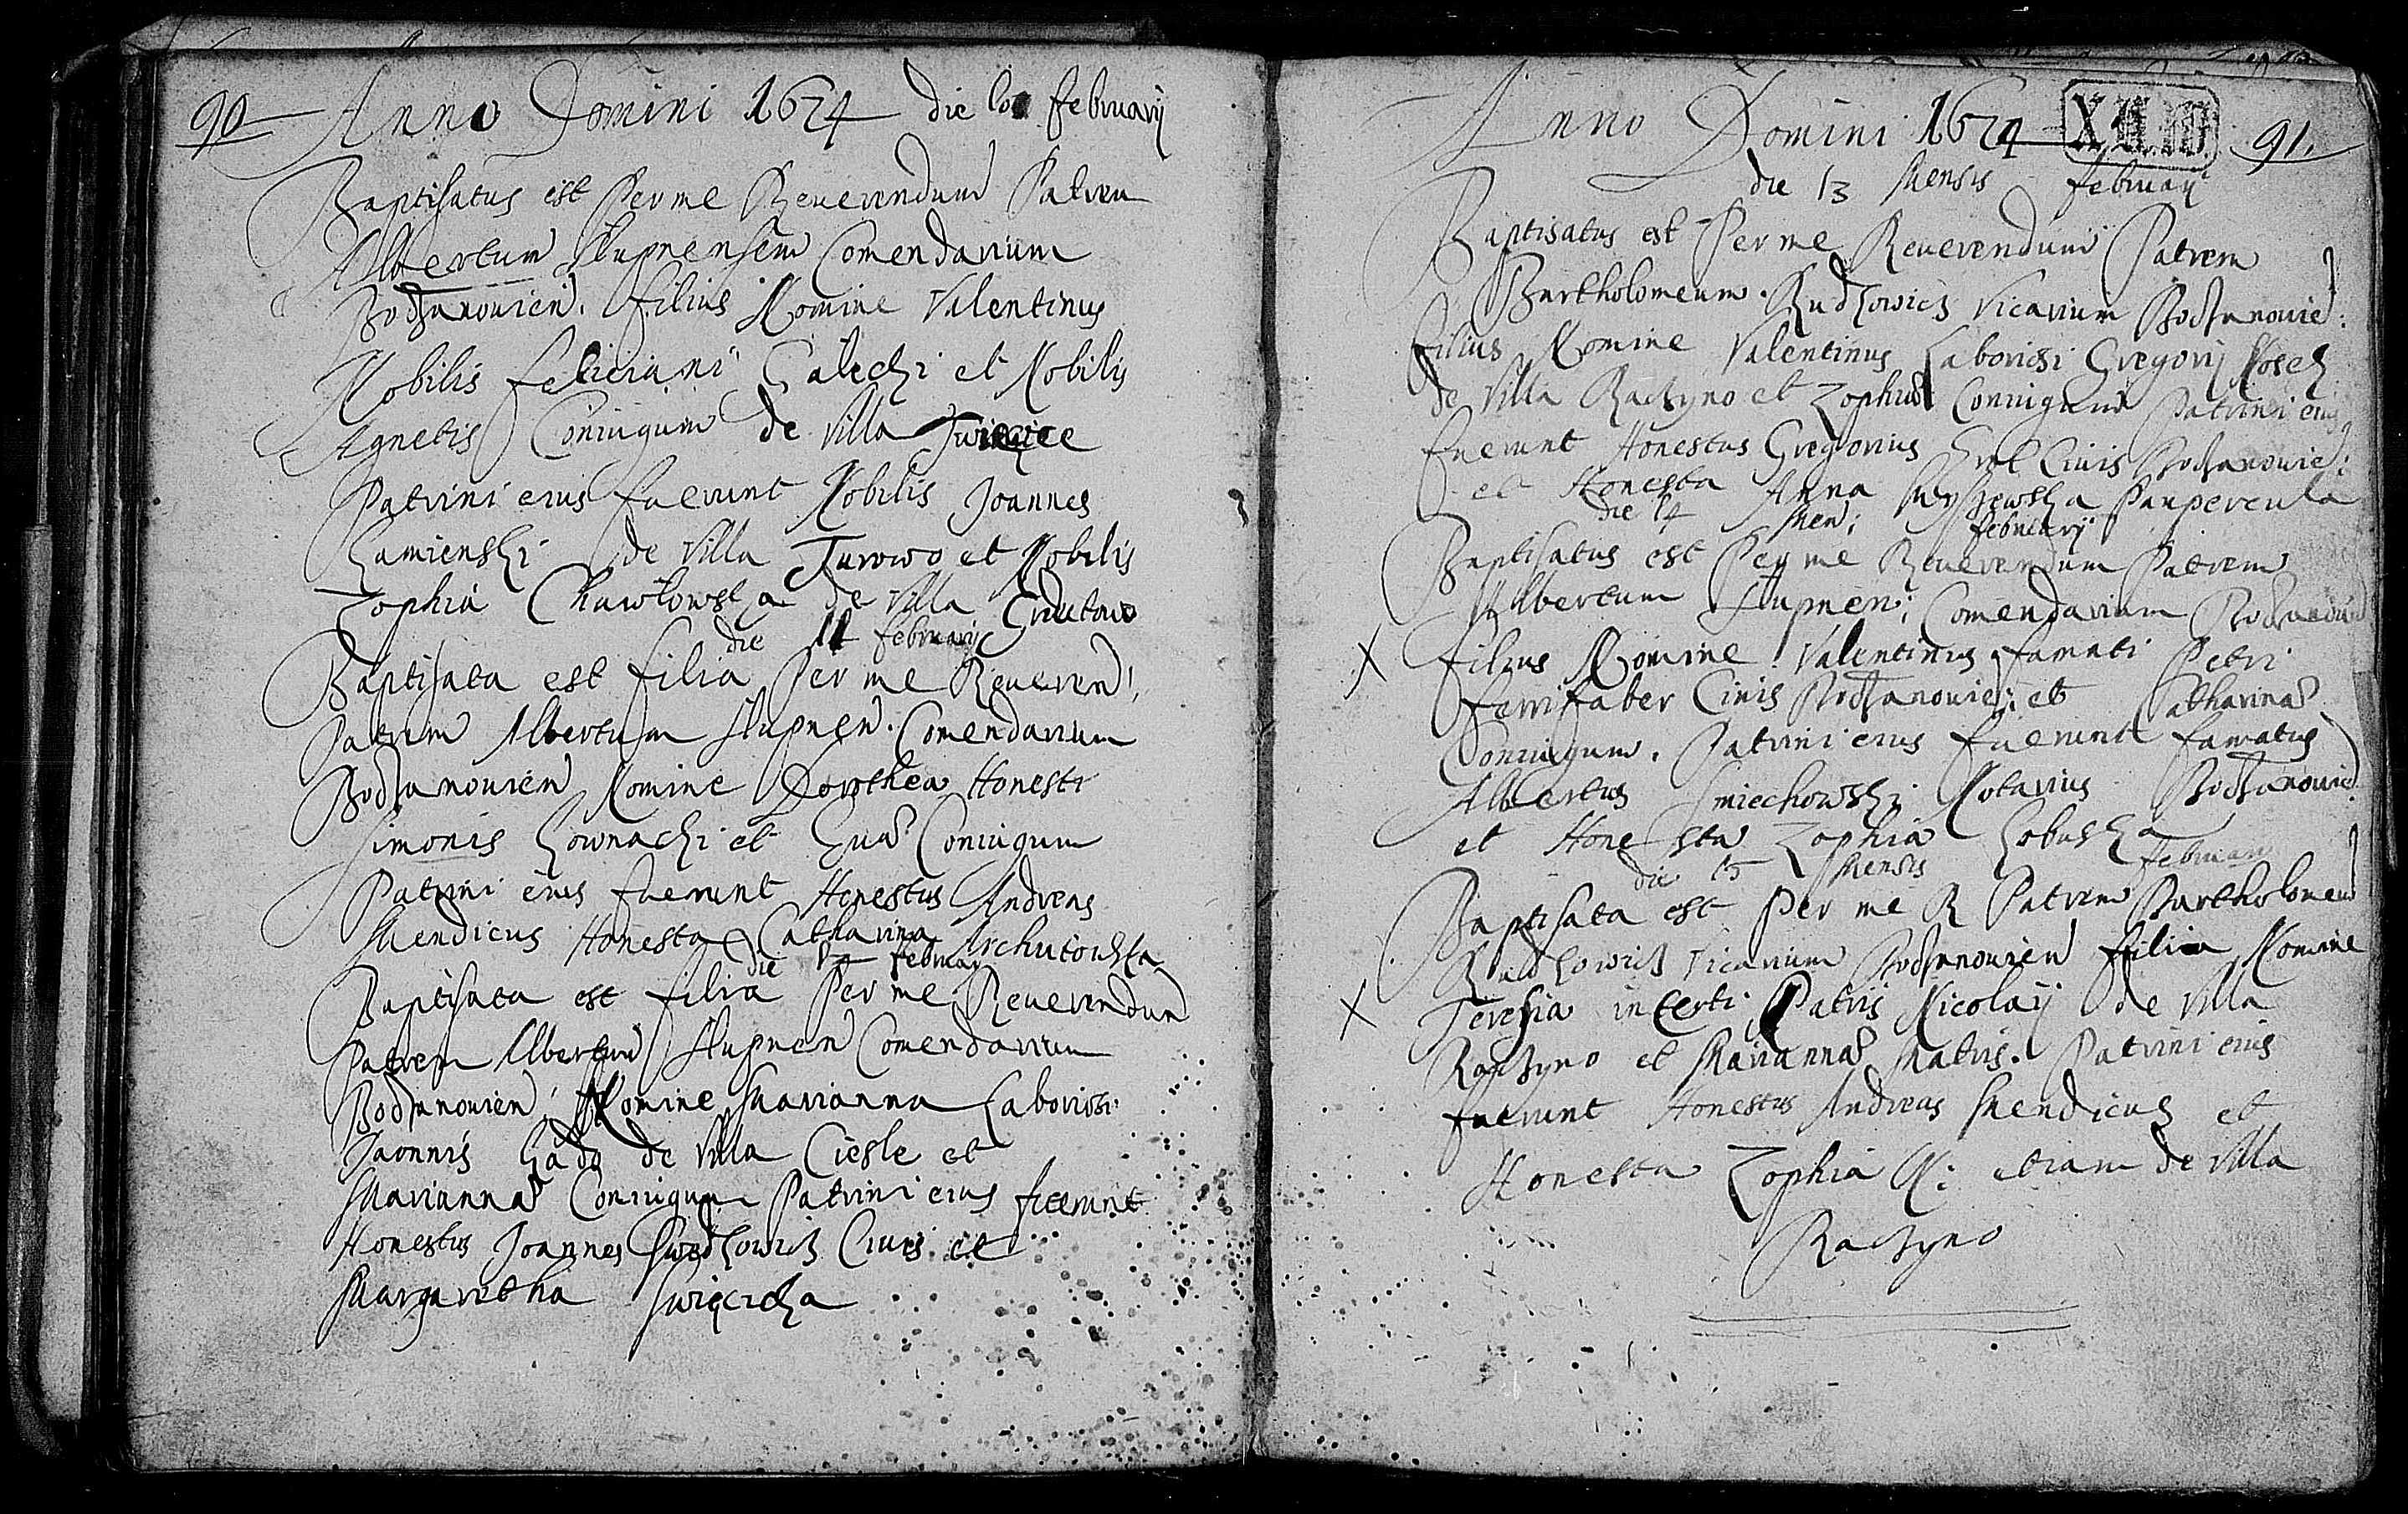 90 Anno Domini 1674 die februarij
Baptisatus est Per me Reuerendum Patrem
Albertum Slupnensem Comendarium
Bodzanouien. filius Nomine Valentinus
Nobilis feliciani Galecki et Nobilis
Agnetis Coniugum de Villa
Patrini eius fuerunt Nobilis Joannes
Kamienski de Villa Turowo et Nobilis
Zophia Chawlowska de Villa
die 11 februarij
Baptisata est filia Per me Reueren:
Patrem Albertum Slupnen. Comendarium
Bodzanouien Nomine Dorothea Honesti
Simonis Kownacki et Euae Coniugum
Patrini eius fuerunt Honestus Andreas
Mendicus Honesta Catharina Archutowska
die februar
Baptisata est filia Per me Reuerendum
Patrem Albertum Slupnen Comendarium
Bodzanouien; Nomine Marianna Laboriosi
Jaonnis de Villa Ciesle et
Mariannae Coniugum Patrini eius fuerunt
Honestus Joannes Ciuis et
Margaretha Swięcicka
Anno Domini 1674 91.
die 13 Mensis februarij
Baptisatus est Per me Reuerendum Patrem
Bartholomeum Rudkowicz Vicarium Bodzanouie:
filius Nomine Valentinus Laboriosi Gregorij Kosek
de Villa Raczyno et Zophiae Coniugum Patrini eius
fuerunt Honestus Gregorius Ciuis Bodzanouie:
et Honesta Anna Paupercula
die 14 Men: februarij
Baptisatus est Per me Reuerendum Patrem
Albertum Slupnen: Comendarium
X filius Nomine Valentinus famati Petri
ferrifaber Ciuis Bodzanouie: et Catharinae
Coniugum. Patrini eius fuerunt famatus
Albertus Smiechowski Notarius Bodzanouie
et Honesta Zophia Kobuska
die 15 Mensis februarij
Baptisata est Per me R Patrem Bartholomeum
Rudkowicz Vicarium Bodzanouien filia Nomine
X Teresia incerti Patris Nicolaij de Villa
Raczyno et Mariannae Matris. Patrini eius
fuerunt Honestus Andreas Mendicus et
Honesta Zophia N: etiam de Villa
Raczyno